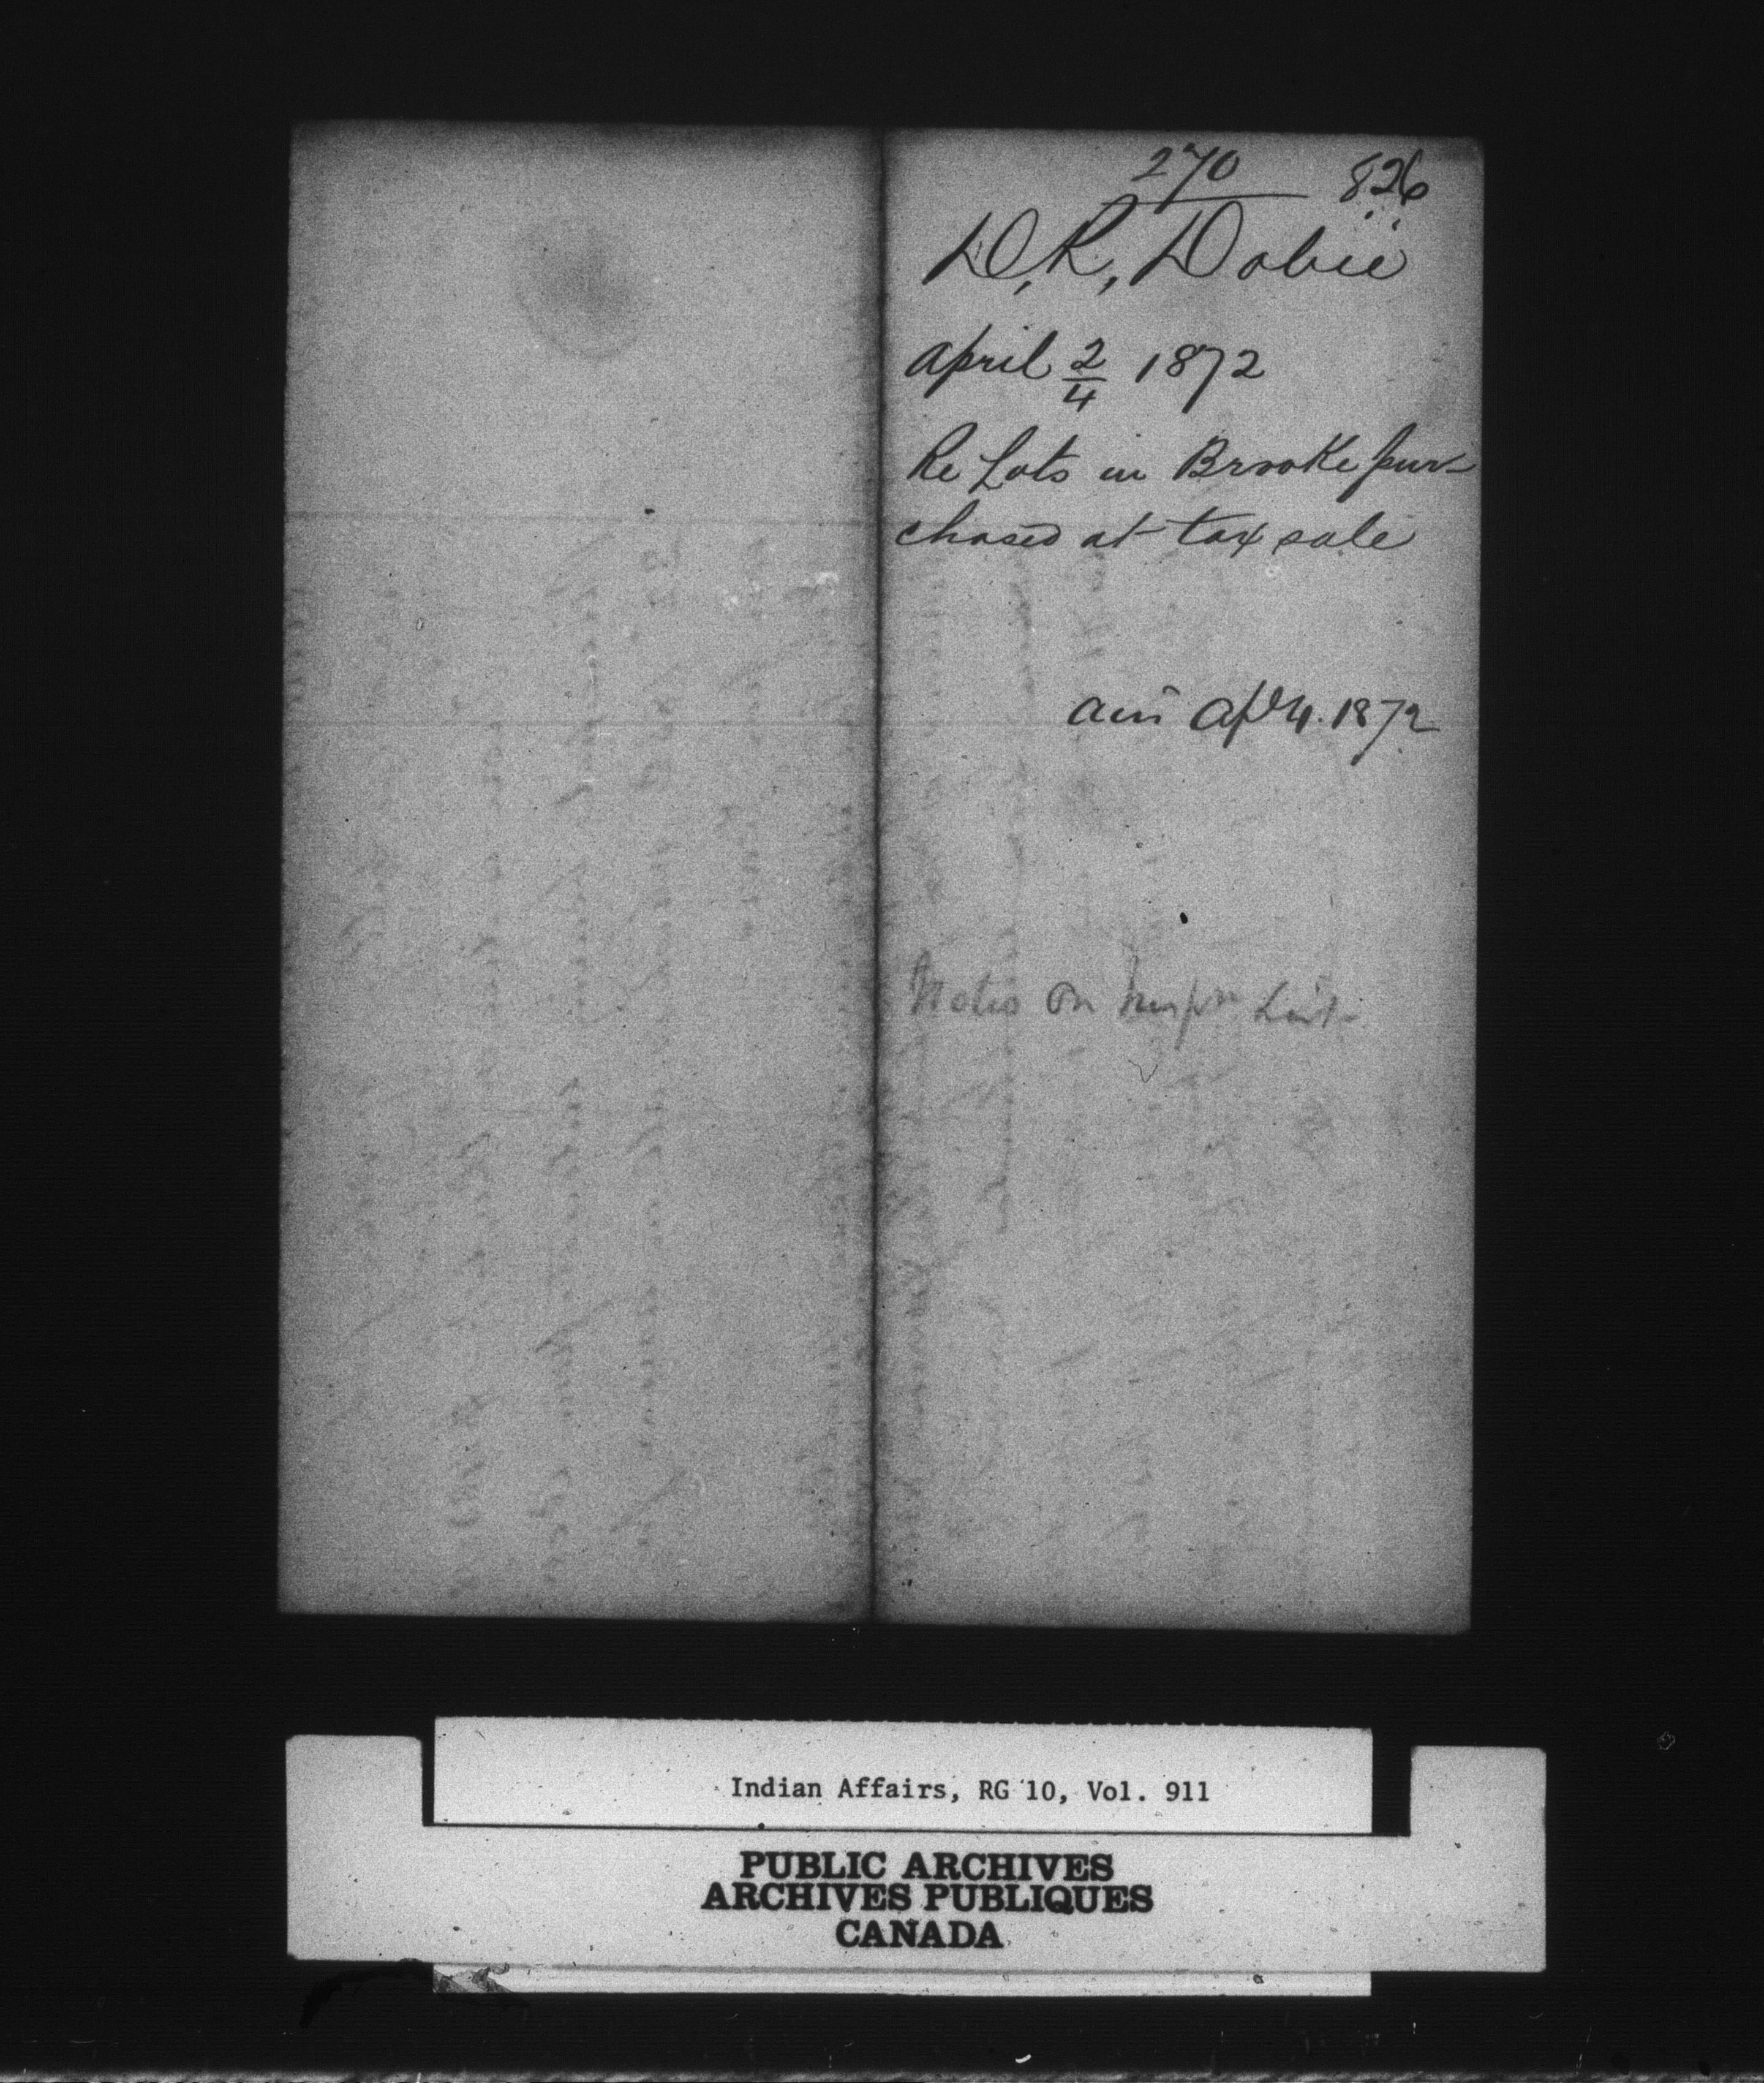 270 826
D, R, Dobie
April 2/4 1872
Re Lots in Brooke pur-
chased at tax sale
Apl 4. 1872
Notes on List
Indian Affairs, RG 10, Vol. 911
PUBLIC ARCHIVES
ARCHIVES PUBLIQUES
CANADA